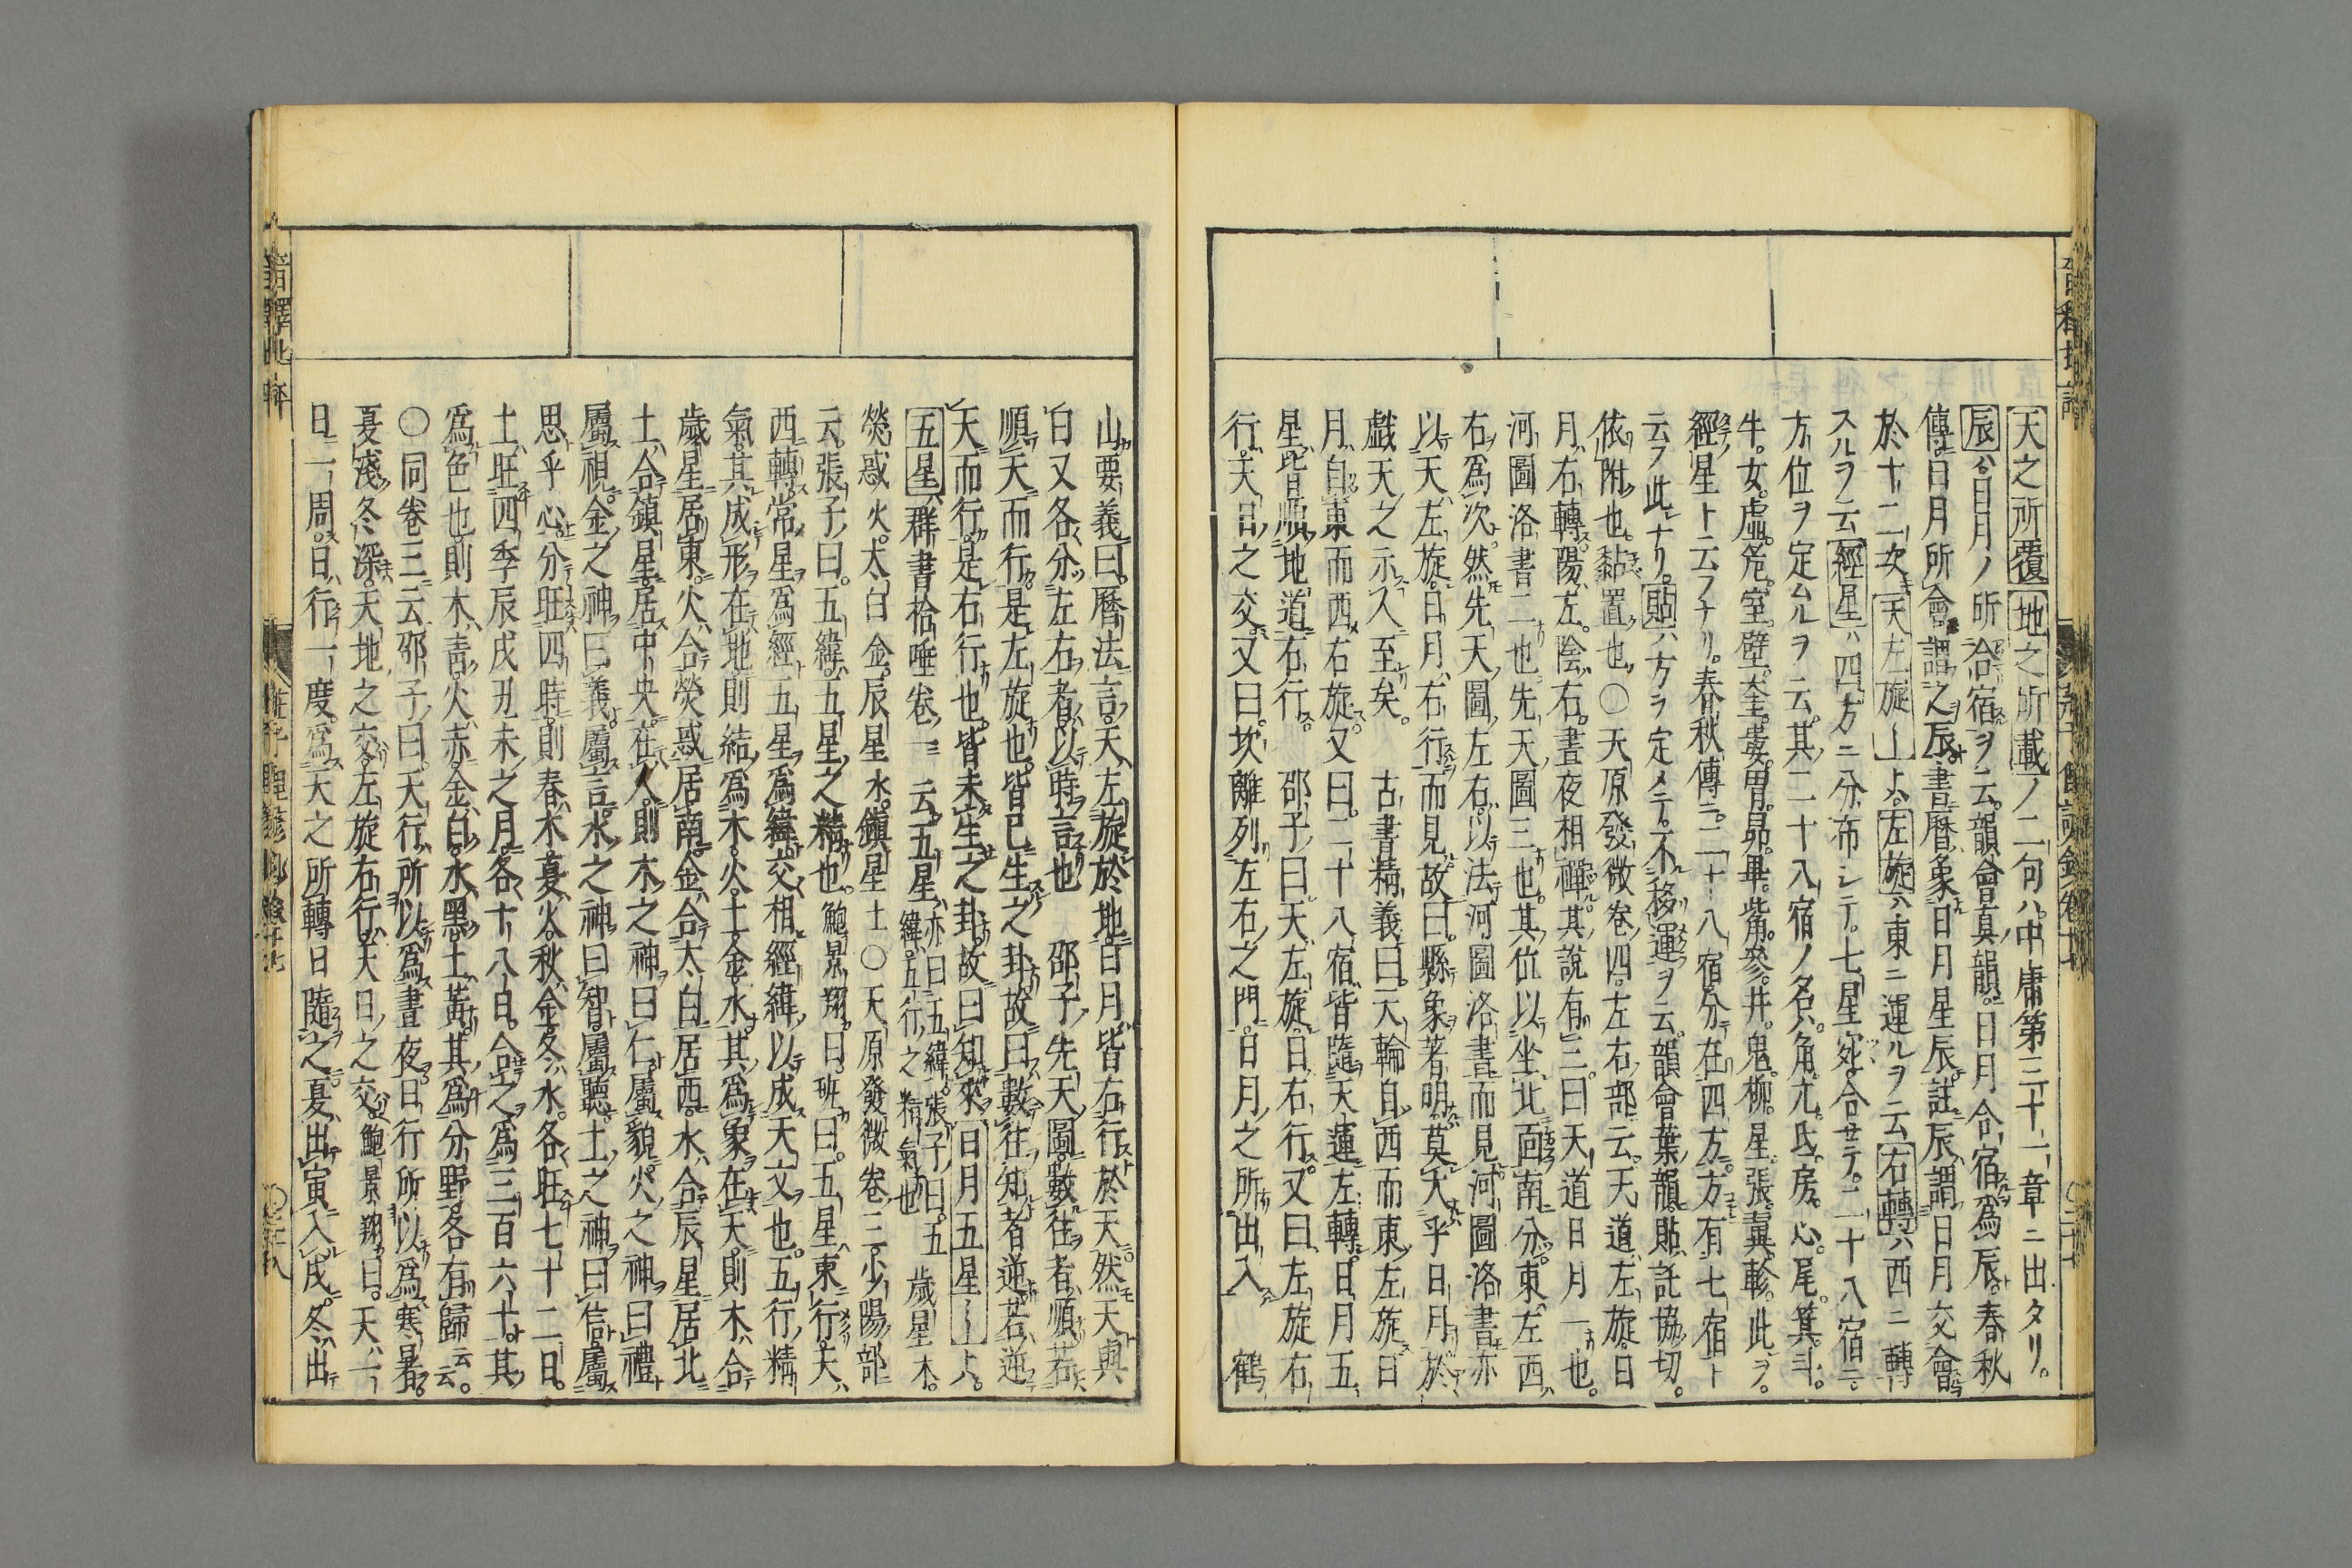 天之所覆地之所載ノ二句ハ中庸第三十一章ニ出タリ。
辰ハ日月ノ所合宿ヲ云。韻會真韻。日月合宿為辰。春秋
傳。日月所會謂之辰。書曆象日月星辰註辰謂日月交會
於十二次天左旋ーよ。左旋ハ東ニ運ルヲ云右轉ハ西ニ轉
スルヲ云經星ハ四方ニ分布シテ。七星宛合セテ二十八宿ニ
方位ヲ定ムルヲ云。其二十八宿ノ名ハ角。亢。氐。房。心。尾。箕。斗。
牛。女。虛。危。室。壁。奎。婁。胃。昴。畢。觜。參。井。鬼。柳。星。張。翼。軫。此ヲ
經星ト云フナリ。春秋傳ニ。二十八宿分在四方。方有七宿ト
云ヲ此ナリ。貼ハ方ヲ定メテ。不移運ヲ云。韻會葉韻。貼託協切。
依附也。黏置也。〇天原發微卷四。左右部云。天道左旋。日
月右轉。陽左。陰右。晝夜相禪。其說有三。曰天道日月一也。
河圖洛書二也。先天圖三也。其位以坐北面南分。東左西
右為次。然先天圖左右。以法河圖洛書而見。河圖洛書亦
以天左旋。日月右行而見。故曰。縣象著明。莫大乎日月。於
戲天之示人至矣。　古書精義曰。天輪自西而東左旋。日
月自東而西右旋。又曰。二十八宿。皆隨天運左轉。日月五
星皆順地道右行。　邵子曰。天左旋。日右行。又曰。左旋右
行。天日之交。又曰。坎離列左右之門。日月之所出入　鶴
山要義曰。曆法言。天左旋於地。日月皆右行於天。然天與
日又各分左右者。以時言也　邵子先天圖。數往者順。若
順天而行。是左旋也。皆已生之卦。故曰數往。知者逆。若逆
天而行。是右行也。皆未生之卦。故曰知來日月五星ーよ。
五星群書拾唾卷一云。五星亦曰五緯。張子曰。五
緯。五行之精氣也　歲星木。
熒惑火。太白金。辰星水。鎮星土〇天原發微卷三。少陽部
云。張子曰。五緯。五星之精也。鮑景翔曰。班曰。五星東行。天
西轉。常星為經。五星為緯。交相經緯。以成天文也。五行精
氣。其成形在地。則結為木火土金水。其為象在天。則木合
歲星居東。火合熒惑居南。金合太白居西。水合辰星居北
土合鎮星居中央。在人則木之神曰仁。屬貌。火之神曰禮
屬視。金之神曰義。屬言。水之神曰智。屬聽。土之神曰信。屬
思乎心。分旺四時。則春木。夏火。秋金。冬水。各旺七十二日。
土旺四季辰戌丑未之月。各十八日。合之為三百六十。其
為色也。則木青。火赤。金白。水黑。土黃。其為分野。各有歸云云。
〇同卷三云邵子曰。天行所以為晝夜。日行所以為寒暑。
夏淺冬深。天地之交。左旋右行。天日之交鮑景翔曰。天一
日一周。日行一度。為天之所轉日隨之。夏出寅入戌。冬出